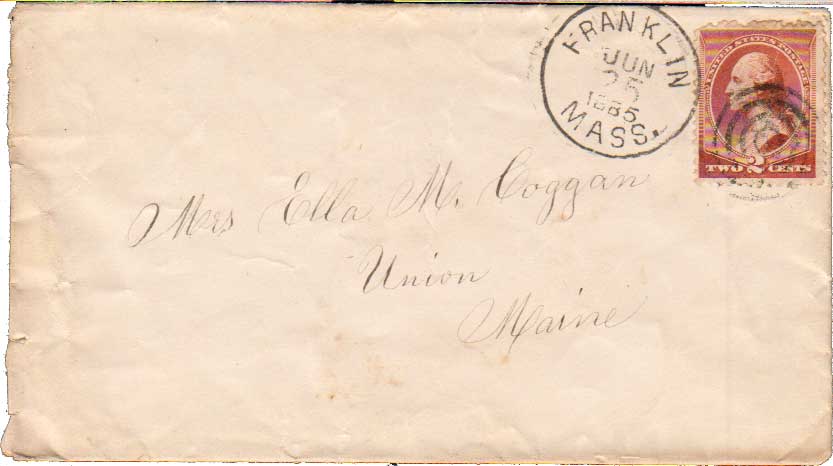 FRANKLIN
JUN
25
1885
MASS.
UNITED STATES POSTAGE
TWO 2 CENTS
Mrs Ella M. Coggan
Union
Maine